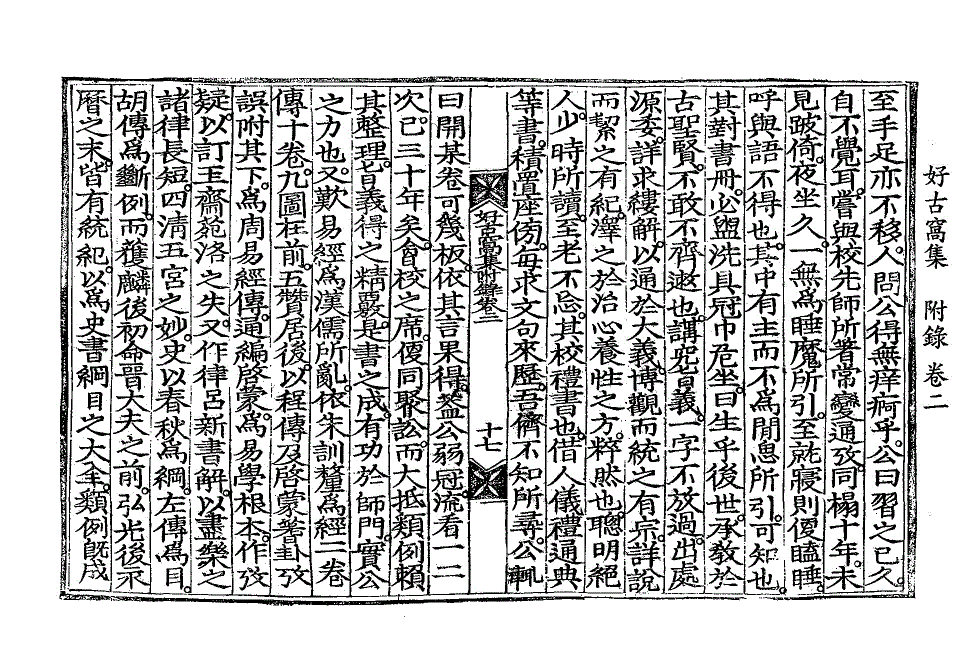 好古窩集 附錄 卷二
至手足亦不移。人問公得無痒痾乎。公曰習之已久。
自不覺耳。嘗與校先師所著常變通攷。同榻十年。未
見跛倚。夜坐久。一無爲睡魔所引。至就寢則便瞌睡。
呼與語不得也。其中有主而不爲閒思所引。可知也。
其對書冊。必盥洗具冠巾危坐曰生乎後世。承敎於
古聖賢。不敢不齊遬也。講究旨義。一字不放過。出處
源委。詳求縷解。以通於大義。博觀而統之有宗。詳說
而絜之有紀。澤之於治心養性之方。粹然也。聰明絕
人。少時所讀。至老不忘。其校禮書也。借人儀禮通典
等書。積置座傍。每求文句來歷。吾儕不知所尋。公輒
好古窩集附錄卷二
十七
曰開某卷可幾板。依其言果得。盖公弱冠。流看一二
次。已三十年矣。會校之席。便同聚訟。而大抵類例賴
其整理。旨義得之精覈。是書之成。有功於師門。實公
之力也。又歎易經爲漢儒所亂。依朱訓釐爲經二卷
傳十卷。九圖在前。五贊居後。以程傳及啓蒙蓍卦攷
誤附其下。爲周易經傳。通編啓蒙。爲易學根本。作攷
疑。以訂玉齋範洛之失。又作律呂新書解。以盡樂之
諸律長短。四淸五宮之妙。史以春秋爲綱。左傳爲目。
胡傳爲斷例。而獲麟後初命晉大夫之前。弘光後永
曆之末。皆有統紀。以爲史書綱目之大全。類例旣成